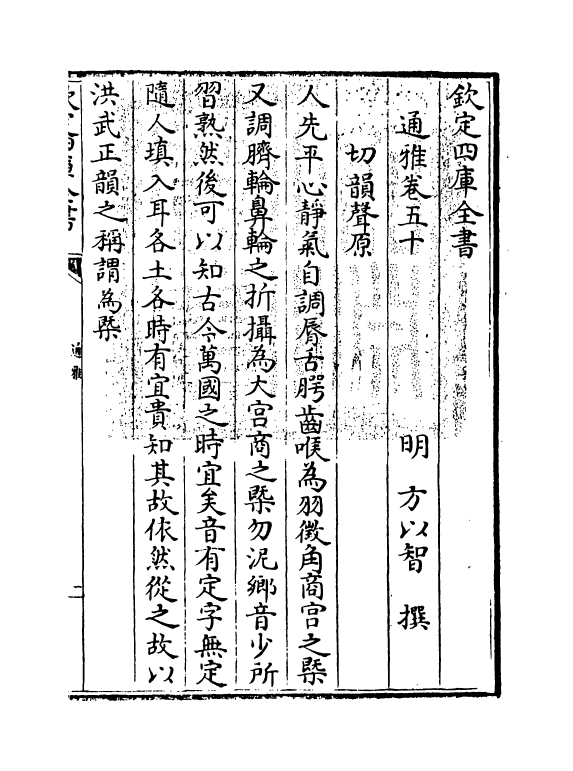 欽定四庫全書
通雅卷五十
明 方以智 撰
切韻聲原
人先平心靜氣自調脣舌腭齒喉為羽徵角商宫之槩
又調臍輪鼻輪之折攝為大宫商之槩勿泥鄉音少所
習熟然後可以知古今萬國之時宜矣音有定字無定
隨人填入耳各土各時有宜貴知其故依然從之故以
洪武正韻之稱謂為槩
通雅